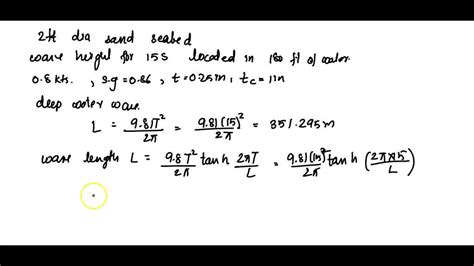 2ft dia sand seabed
wave height for 15s located in 180 ft of water.
0.8 kts. , s.g = 0.86 , t = 0.25 in , tc = 1 in
deep water wave.
L = 9.81T² / 2π = 9.81(15)² / 2π = 351.295m
wave length L = 9.8T² / 2π tanh 2πT / L = 9.81(15)² / 2π tanh (2π×15 / L)